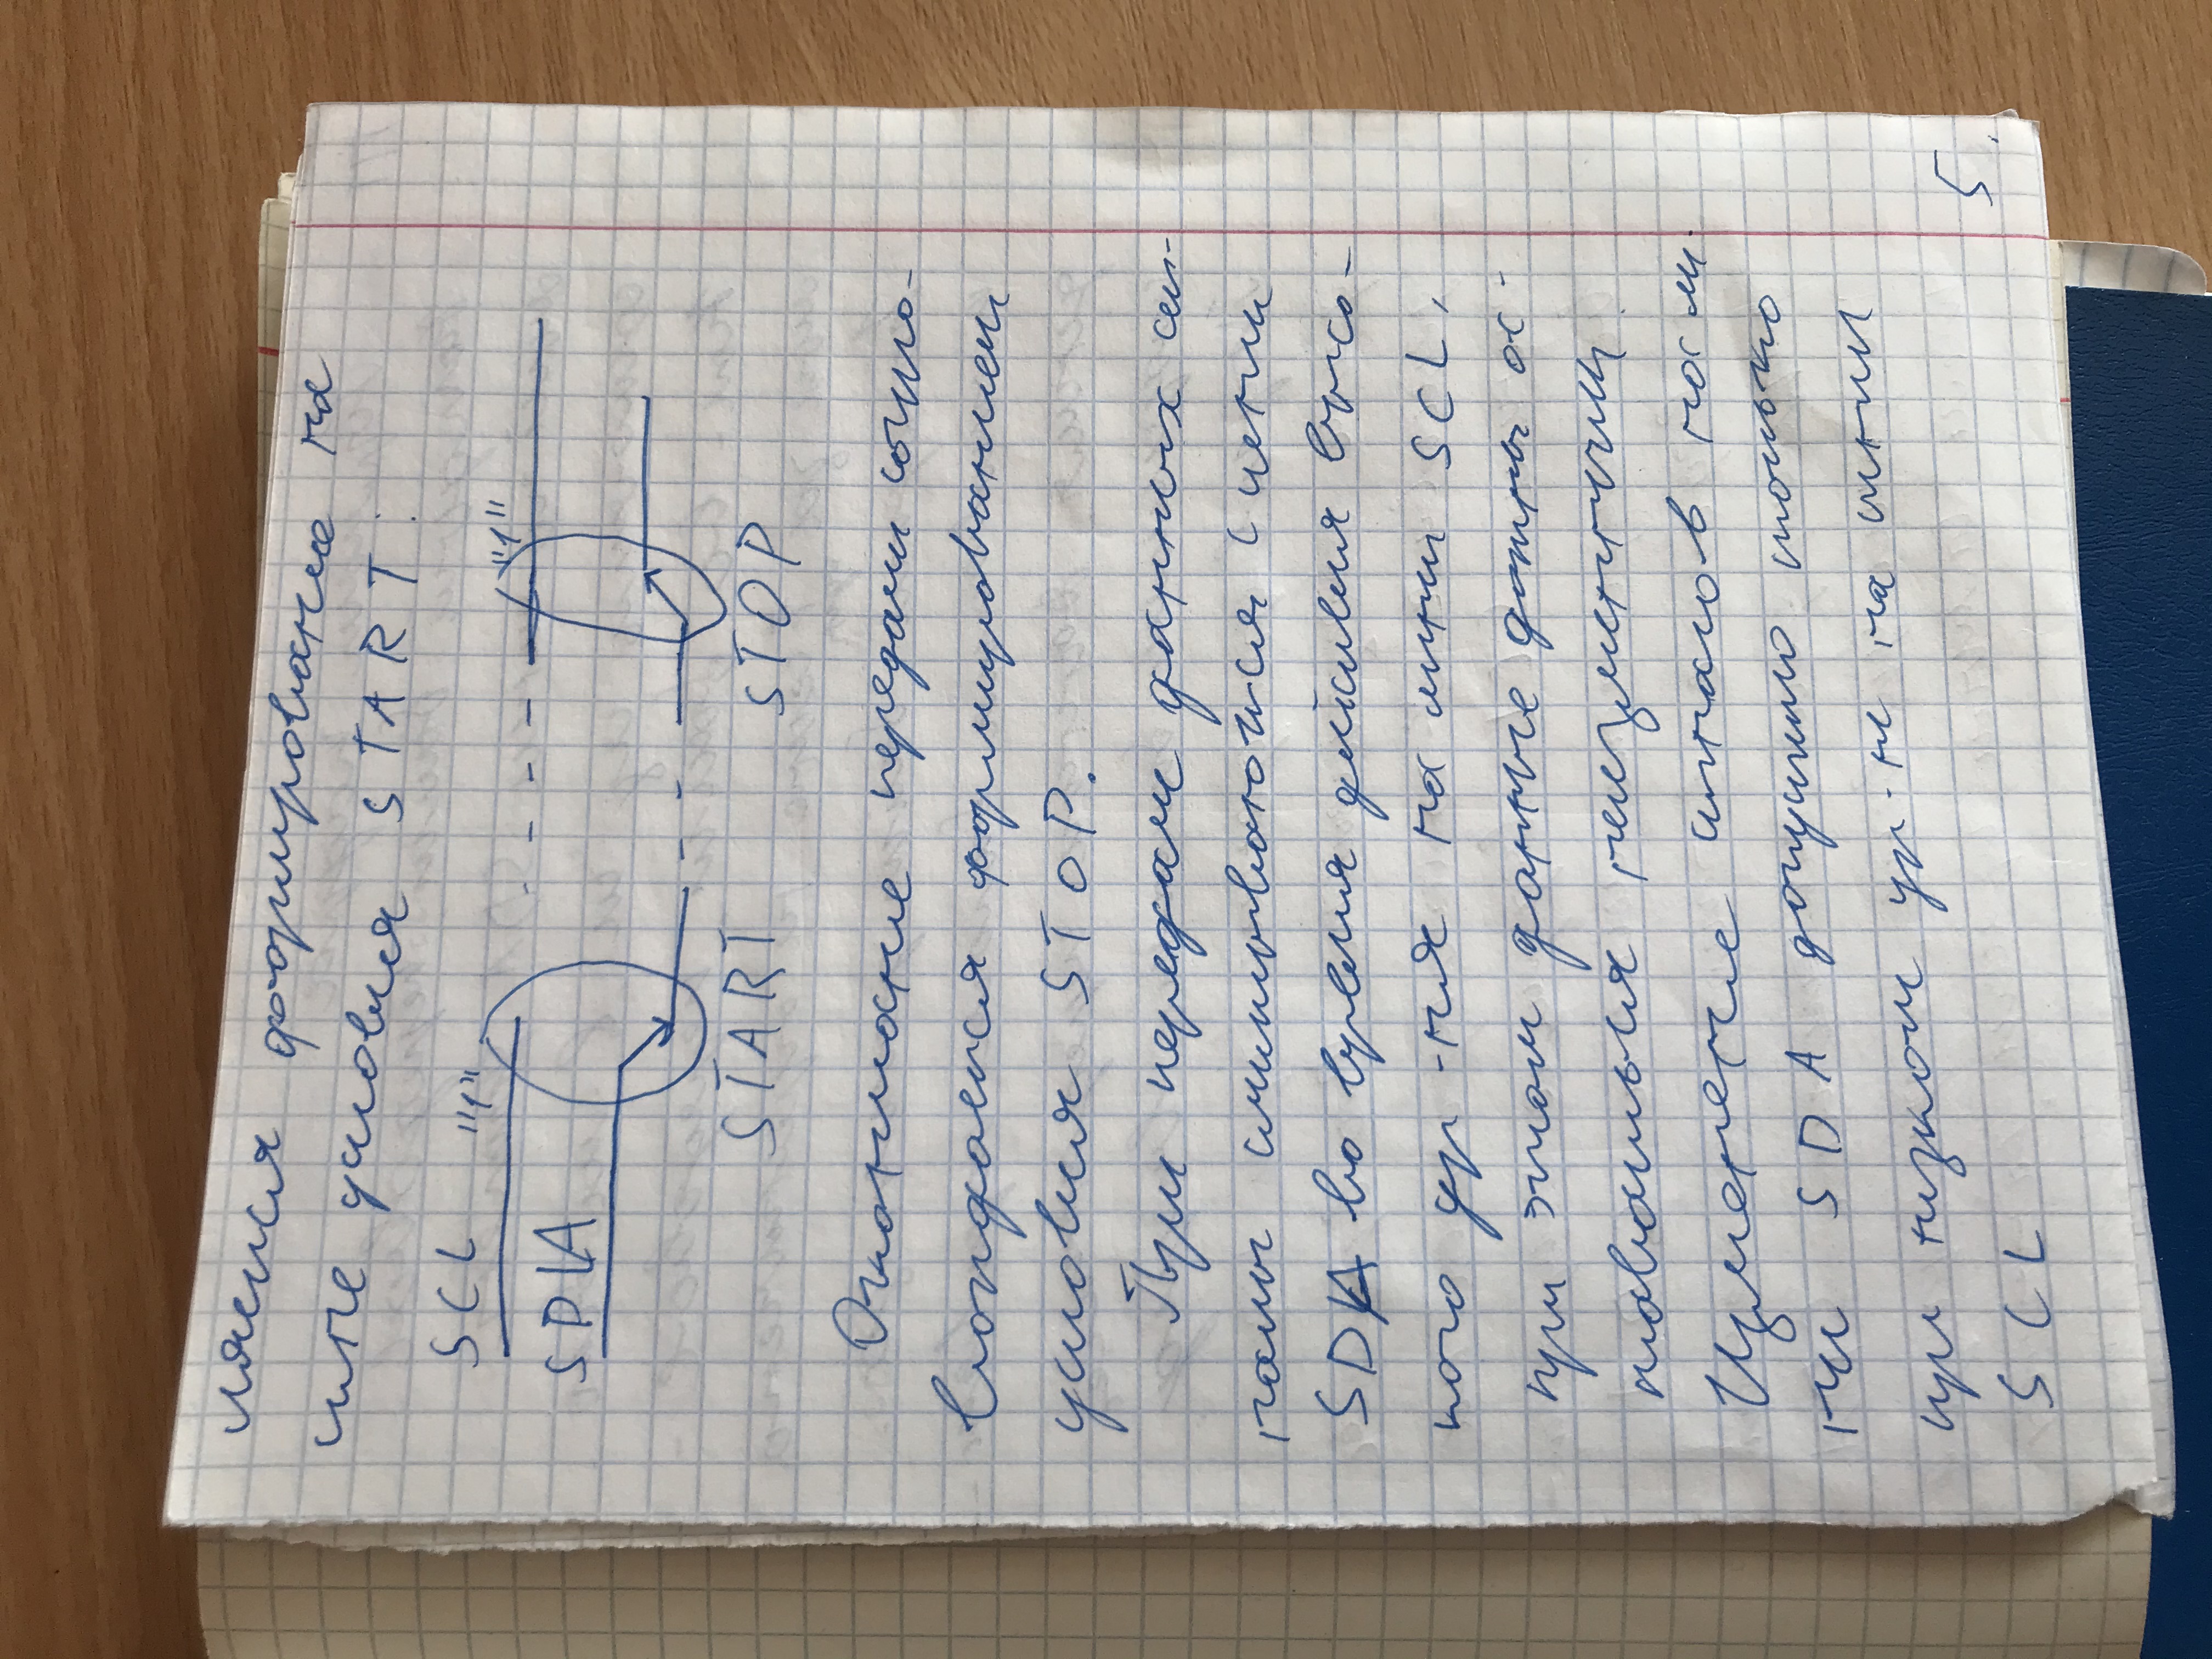 ляется формирование на
шине условия START:
SCL "1" "1"
SDA
START STOP
Окончание передачи сопро-
вождается формированием
условия STOP.
При передаче данных сиг-
налы считываются с шины
SDA во время действия высо-
кого ур-ня на линии SCL,
при этом данные должны ос-
таваться неизменными.
Изменение сигналов на ли-
нии SDA допустимо только
при низком ур-не на линии
SCL
5.